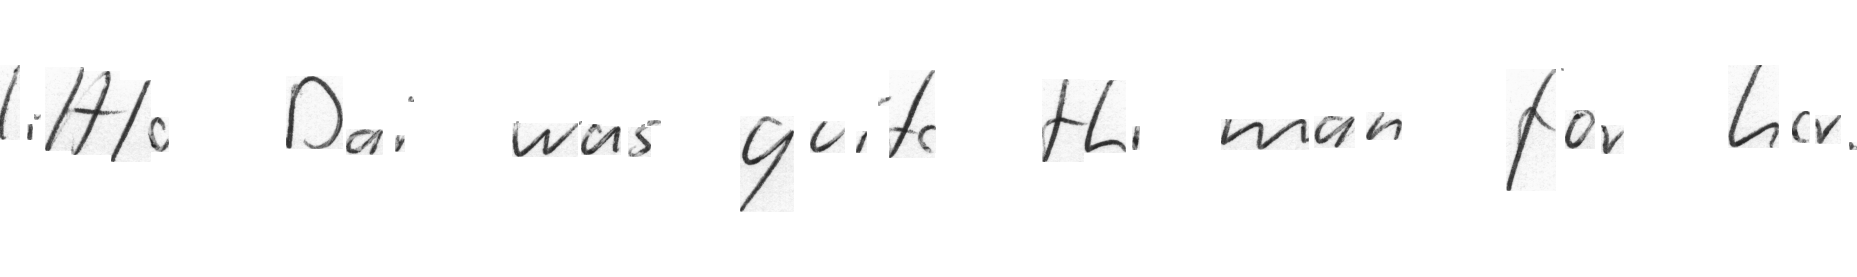 little Dai was quite the man for her.